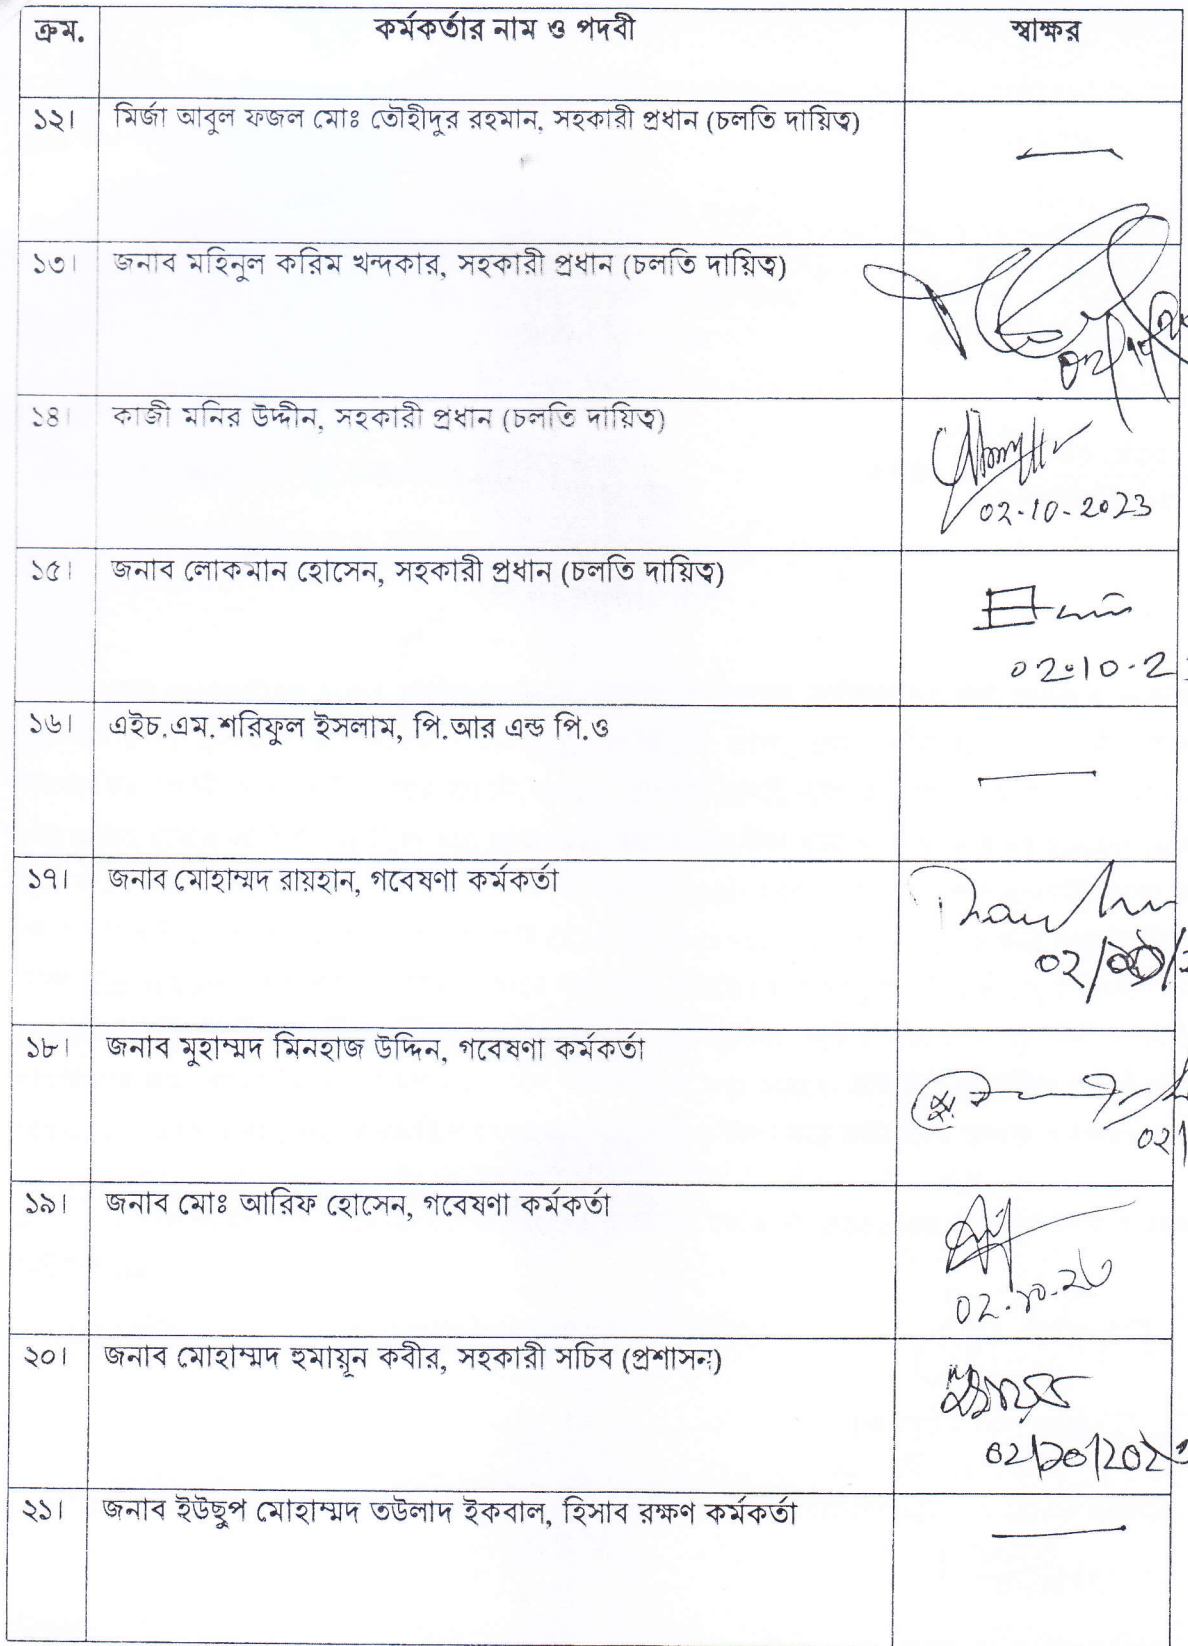 ক্রম. কর্মকর্তার নাম ও পদবী স্বাক্ষর
১২। মির্জা আবুল ফজল মোঃ তৌহীদুর রহমান, সহকারী প্রধান (চলতি দায়িত্ব)
১৩। জনাব মহিনুল করিম খন্দকার, সহকারী প্রধান (চলতি দায়িত্ব)
১৪। কাজী মনির উদ্দীন, সহকারী প্রধান (চলতি দায়িত্ব)
02-10-2023
১৫। জনাব লোকমান হোসেন, সহকারী প্রধান (চলতি দায়িত্ব)
02.10-2
১৬। এইচ.এম.শরিফুল ইসলাম, পি.আর এন্ড পি.ও
১৭। জনাব মোহাম্মদ রায়হান, গবেষণা কর্মকর্তা
১৮। জনাব মুহাম্মদ মিনহাজ উদ্দিন, গবেষণা কর্মকর্তা
১৯। জনাব মোঃ আরিফ হোসেন, গবেষণা কর্মকর্তা
২০। জনাব মোহাম্মদ হুমায়ূন কবীর, সহকারী সচিব (প্রশাসন)
২১। জনাব ইউছুপ মোহাম্মদ তউলাদ ইকবাল, হিসাব রক্ষণ কর্মকর্তা